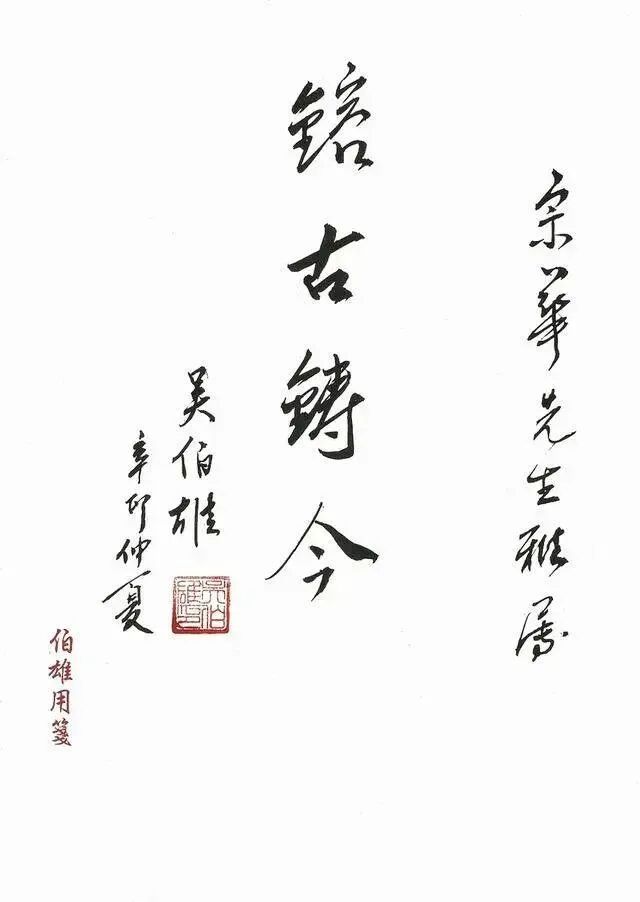 宗華先生雅屬
鎔古鑄今
吳伯雄
辛卯仲夏
吳伯雄印
伯雄用箋